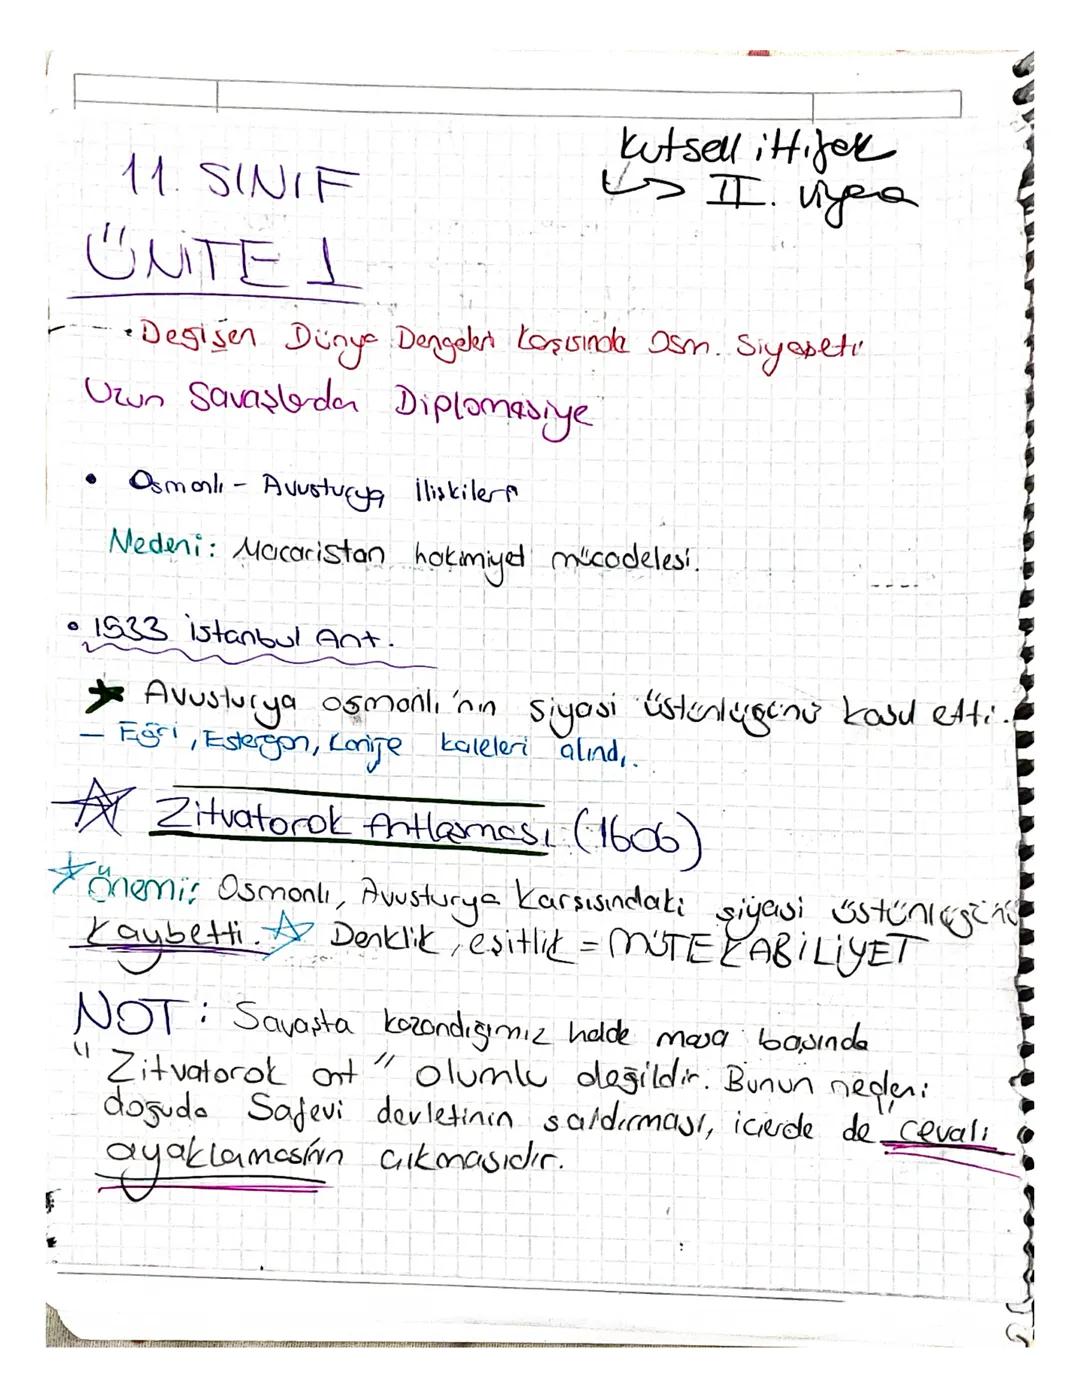 Kutsal ittifak
↳ II. Viyana
11. SINIF
ÜNİTE 1
• Değişen Dünya Dengeleri Karşısında Osm. Siyaseti
Uzun Savaşlardan Diplomasiye
• Osmanlı - Avusturya İlişkileri
Nedeni: Macaristan hakimiyet mücadelesi.
• 1533 istanbul Ant.
★ Avusturya osmanlı'nın siyasi üstünlüğünü kabul etti.
– Eğri, Estergon, Kanije kaleleri alındı.
☆ Zitvatorok Antlaşması (1606)
☆ Önemi: Osmanlı, Avusturya karşısındaki siyasi üstünlüğünü
kaybetti. ☆ Denklik, eşitlik = MÜTEKABİLİYET
NOT: Savaşta kazandığımız halde masa başında
"Zitvatorok ant" olumlu değildir. Bunun nedeni
doğuda Safevi devletinin saldırması, içerde de cevali
ayaklamasının çıkmasıdır.